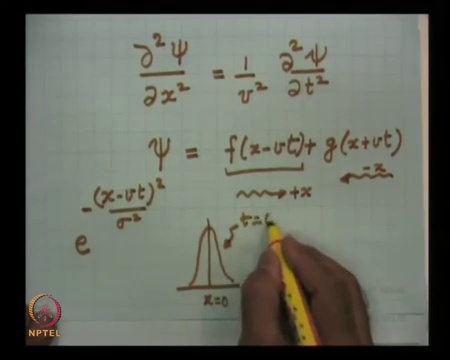 ∂²Ψ/∂x² = 1/v² ∂²Ψ/∂t²
Ψ = f(x-vt) + g(x+vt)
+x
-x
e^-(x-vt)²/σ²
t=
x=0
NPTEL